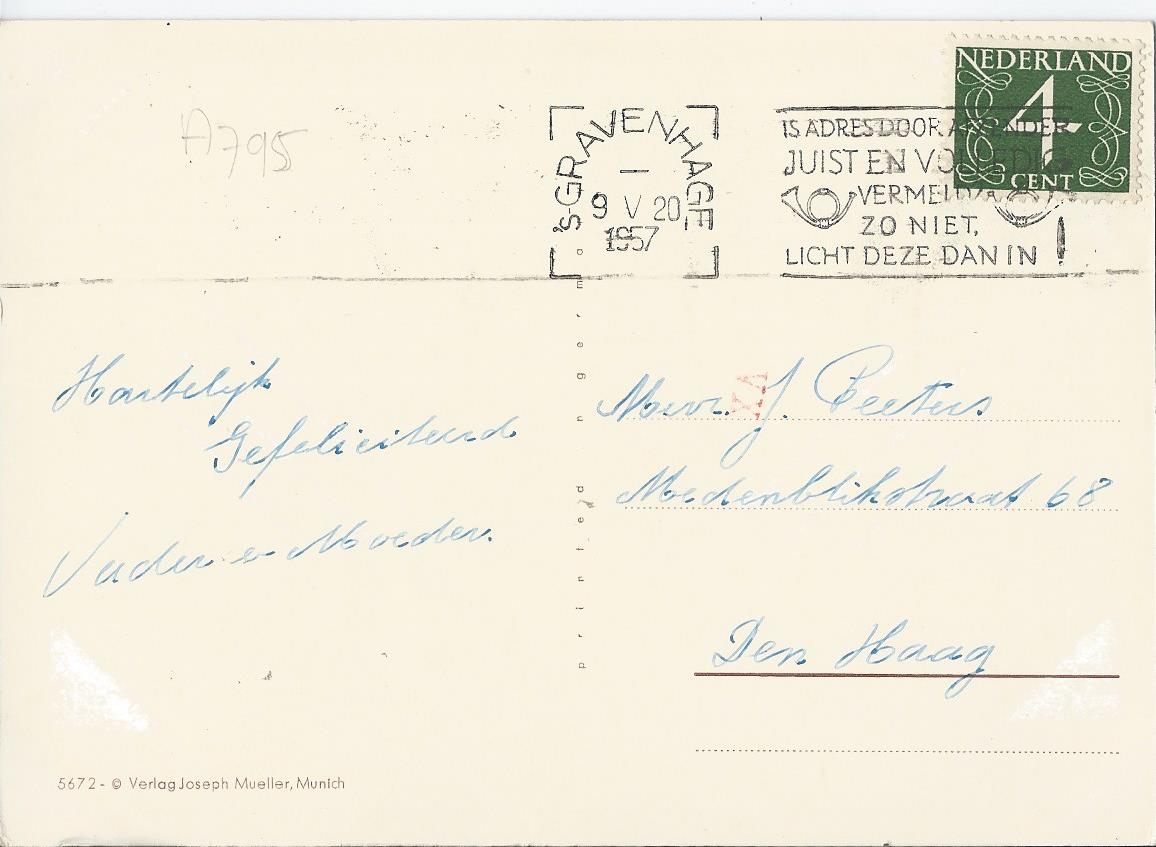 A795
NEDERLAND
4
CENT
'S-GRAVENHAGE
9 V 20
1957
IS ADRES DOOR AFZENDER
JUIST EN VOLLEDIG
VERMELD?
ZO NIET,
LICHT DEZE DAN IN !
Hartelijk
Gefeliciteerd
Vader en Moeder.
Mevr. J. Peeters
Medemblikstraat 68
Den Haag
printed in germ
5672 - © Verlag Joseph Mueller, Munich